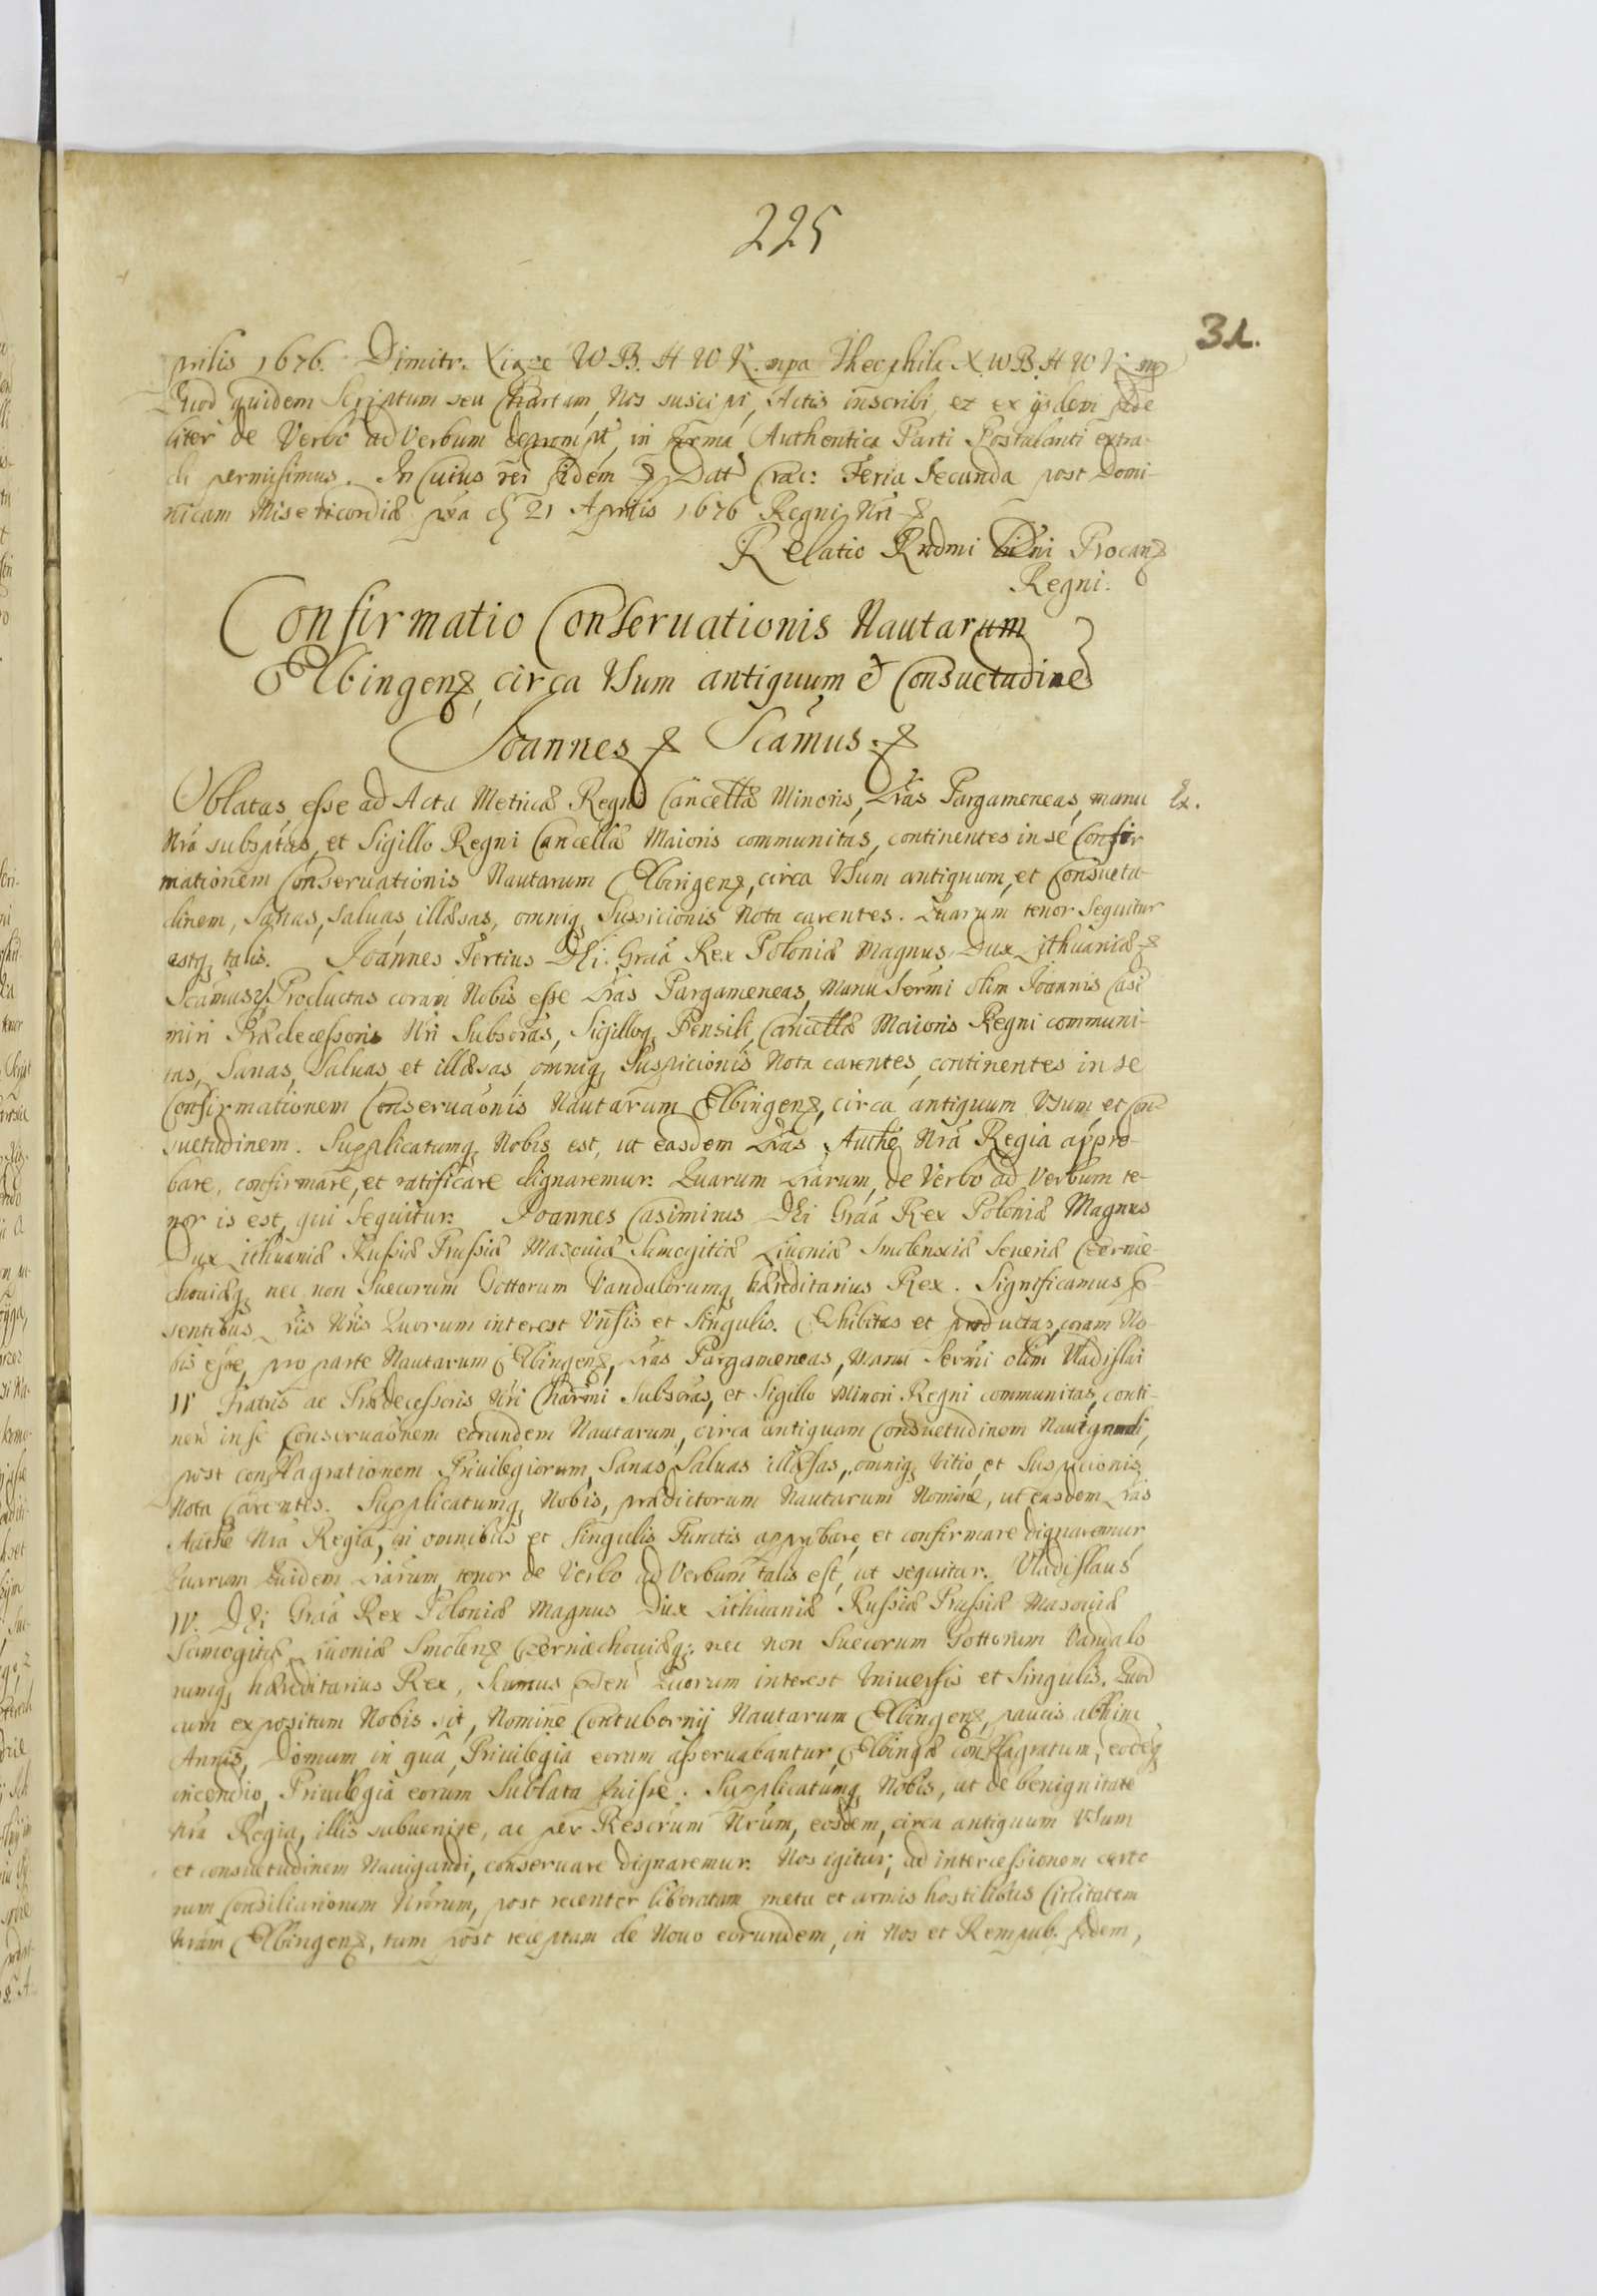 225
31.
prilis 1676. Dimitr. Xiąze W. B. H W K. mpa Theophila X. W B. H W K. mp
Quod quidem Scriptum seu Chartam, Nos suscipi, Actis inscribi, et ex ijsdem fide
liter de Verbo ad Verbum deprompt, in forma Authentica Parti Postulanti extra-
di permisimus. In Cuius rei fidem Dat Crac: Feria Secunda post Domi-
nicam Misericordiæ 21 Aprilis 1676 Regni Nri
Relatio Rndmi Dni Procan
Regni.
Confirmatio Conseruationis Nautarum
Elbingen, circa Vsum antiquum et Consuetudinē
Joannes Scamus.
Oblatas esse ad Acta Metricæ Regni Cancellæ Minoris, Lras Pargameneas, manu Ex.
Nra subsptas, et Sigillo Regni Cancellæ Maioris communitas, continentes in se Confir
mationem Conseruationis Nautarum Elbingen, circa Vsum antiquum, et Consuetu-
dinem, Sanas, Saluas, illæsas, omniq Suspicionis Nota carentes. Quarum tenor Sequitur
estq talis. Joannes Tertius DEi Graa Rex Poloniæ Magnus Dux Lithuaniæ
Scamus. Productas coram Nobis esse Lras Pargameneas, Manu Sermi olim Joannis Casi
miri Prædecessoris Nri Subscras, Sigilloq Pensili, Cancellæ Maioris Regni communi-
tas, Sanas, Saluas, et illæsas, omniq Suspicionis Nota carentes, continentes in se
Confirmationem Conseruaonis Nautarum Elbingen, circa antiquum Vsum et Con-
suetudinem. Supplicatumq Nobis est, ut easdem Lras Authe Nra Regia appro-
bare, confirmare, et ratificare dignaremur. Quarum Lrarum, de Verbo ad Verbum te-
nor is est, qui Sequitur. Joannes Casimirus DEi Graa Rex Poloniæ Magnus
Dux Lithuaniæ Russiæ Prussiæ Masouiæ Samogitiæ Liuoniæ Smolensciæ Seueriæ Czernie-
chouiæq nec non Suecorum Gottorum Vandalorumq hæreditarius Rex. Significamus
sentibus Lris Nris Quorum interest Vnsis et Singulis. Exhibitas et productas, coram No-
bis esse, pro parte Nautarum Elbingen, Lras Pargameneas, Manu Sermi olim Vladislai
IV Fratris ac Prædecessoris Nri Charmi Subscras, et Sigillo Minori Regni communitas, conti-
nen in se Conseruaonem eorundem Nautarum, circa antiquam Consuetudinem Nauigandi,
post conflagrationem Priuilegiorum, Sanas, Saluas illæsas, omniq Vitio, et Suspicionis
Nota Carentes. Supplicatumq Nobis, prædictorum Nautarum Nomine, ut easdem Lras
Authe Nra Regia, in omnibus et Singulis Punctis approbare, et confirmare dignaremur,
Quarum Quidem Lrarum, tenor de Verbo ad Verbum talis est, ut sequitur. Vladislaus
IV. DEi Graa Rex Poloniæ Magnus Dux Lithuaniæ Russiæ Prussiæ Masouiæ
Samogitiæ Liuoniæ Smolen Czerniechouiæq: nec non Suecorum Gottorum Vandalo
rumq hæreditarius Rex, Quorum interest Vniuersis et Singulis. Quod
cum expositum Nobis sit, Nomine Contubernij Nautarum Elbingen, paucis abhinc
Annis, Domum in qua Priuilegia eorum asseruabantur, Elbingæ conflagratam, eodeq
incendio, Priuilegia eorum Sublata fuisse. Supplicatumq Nobis, ut de benignitate
Nra Regia, illis subuenire, ac per Rescrum Nrum, eosdem, circa antiquum Vsum
et consuetudinem Nauigandi, conseruare dignaremur. Nos igitur, ad intercessionem certo
rum Consiliariorum Nrorum, post recenter liberatam metu et armis hostilibus Ciuitatem
Nram Elbingen, tum post receptam de Nouo eorundem, in Nos et Rempub. fidem,